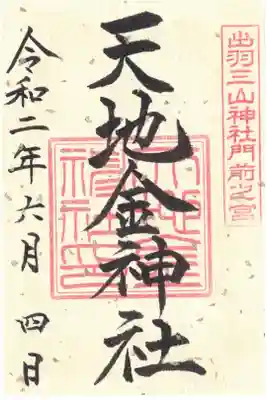 出羽三山神社門前之宮
天地金神社
令和二年六月四日